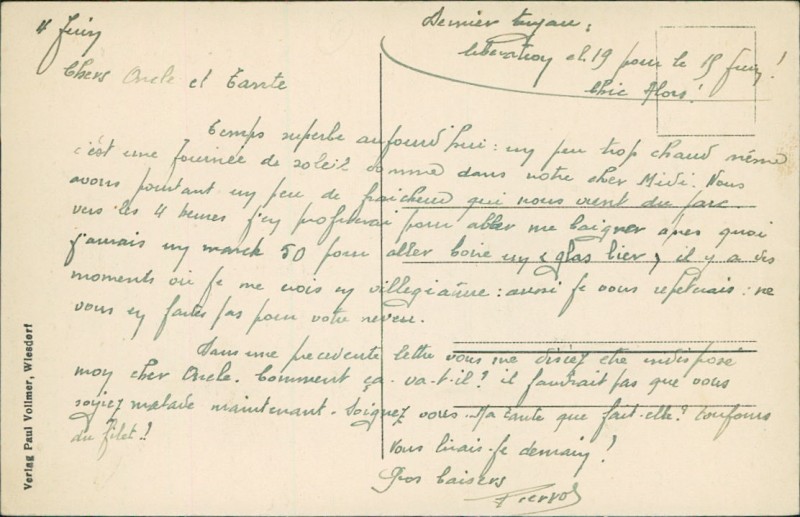 4 Juin
Dernier tuyau :
libération el. 19 pour le 15 Juin !
Chic Alors !
Chers Oncle et Tante
Temps superbe aujourd'hui : un peu trop chaud même
c'est une journée de soleil comme dans notre cher Midi. Nous
avons pourtant un peu de fraicheur qui nous vient du parc.
vers les 4 heures j'en profiterai pour aller me baigner après quoi
j'aurais un marck 50 pour aller boire un "glas bier", il y a des
moments où je me crois en villegiature : aussi je vous repeterais : ne
vous en faites pas pour votre neveu.
Dans une precedente lettre vous me disiez etre indisposé
mon cher Oncle. Comment ça va-t-il ? il faudrait pas que vous
soyiez malade maintenant. Soignez vous. Ma tante que fait-elle ? toujours
du filet !!
Vous lirais-je demain ?
Gros baisers
Pierrot
Verlag Paul Vollmer, Wiesdorf